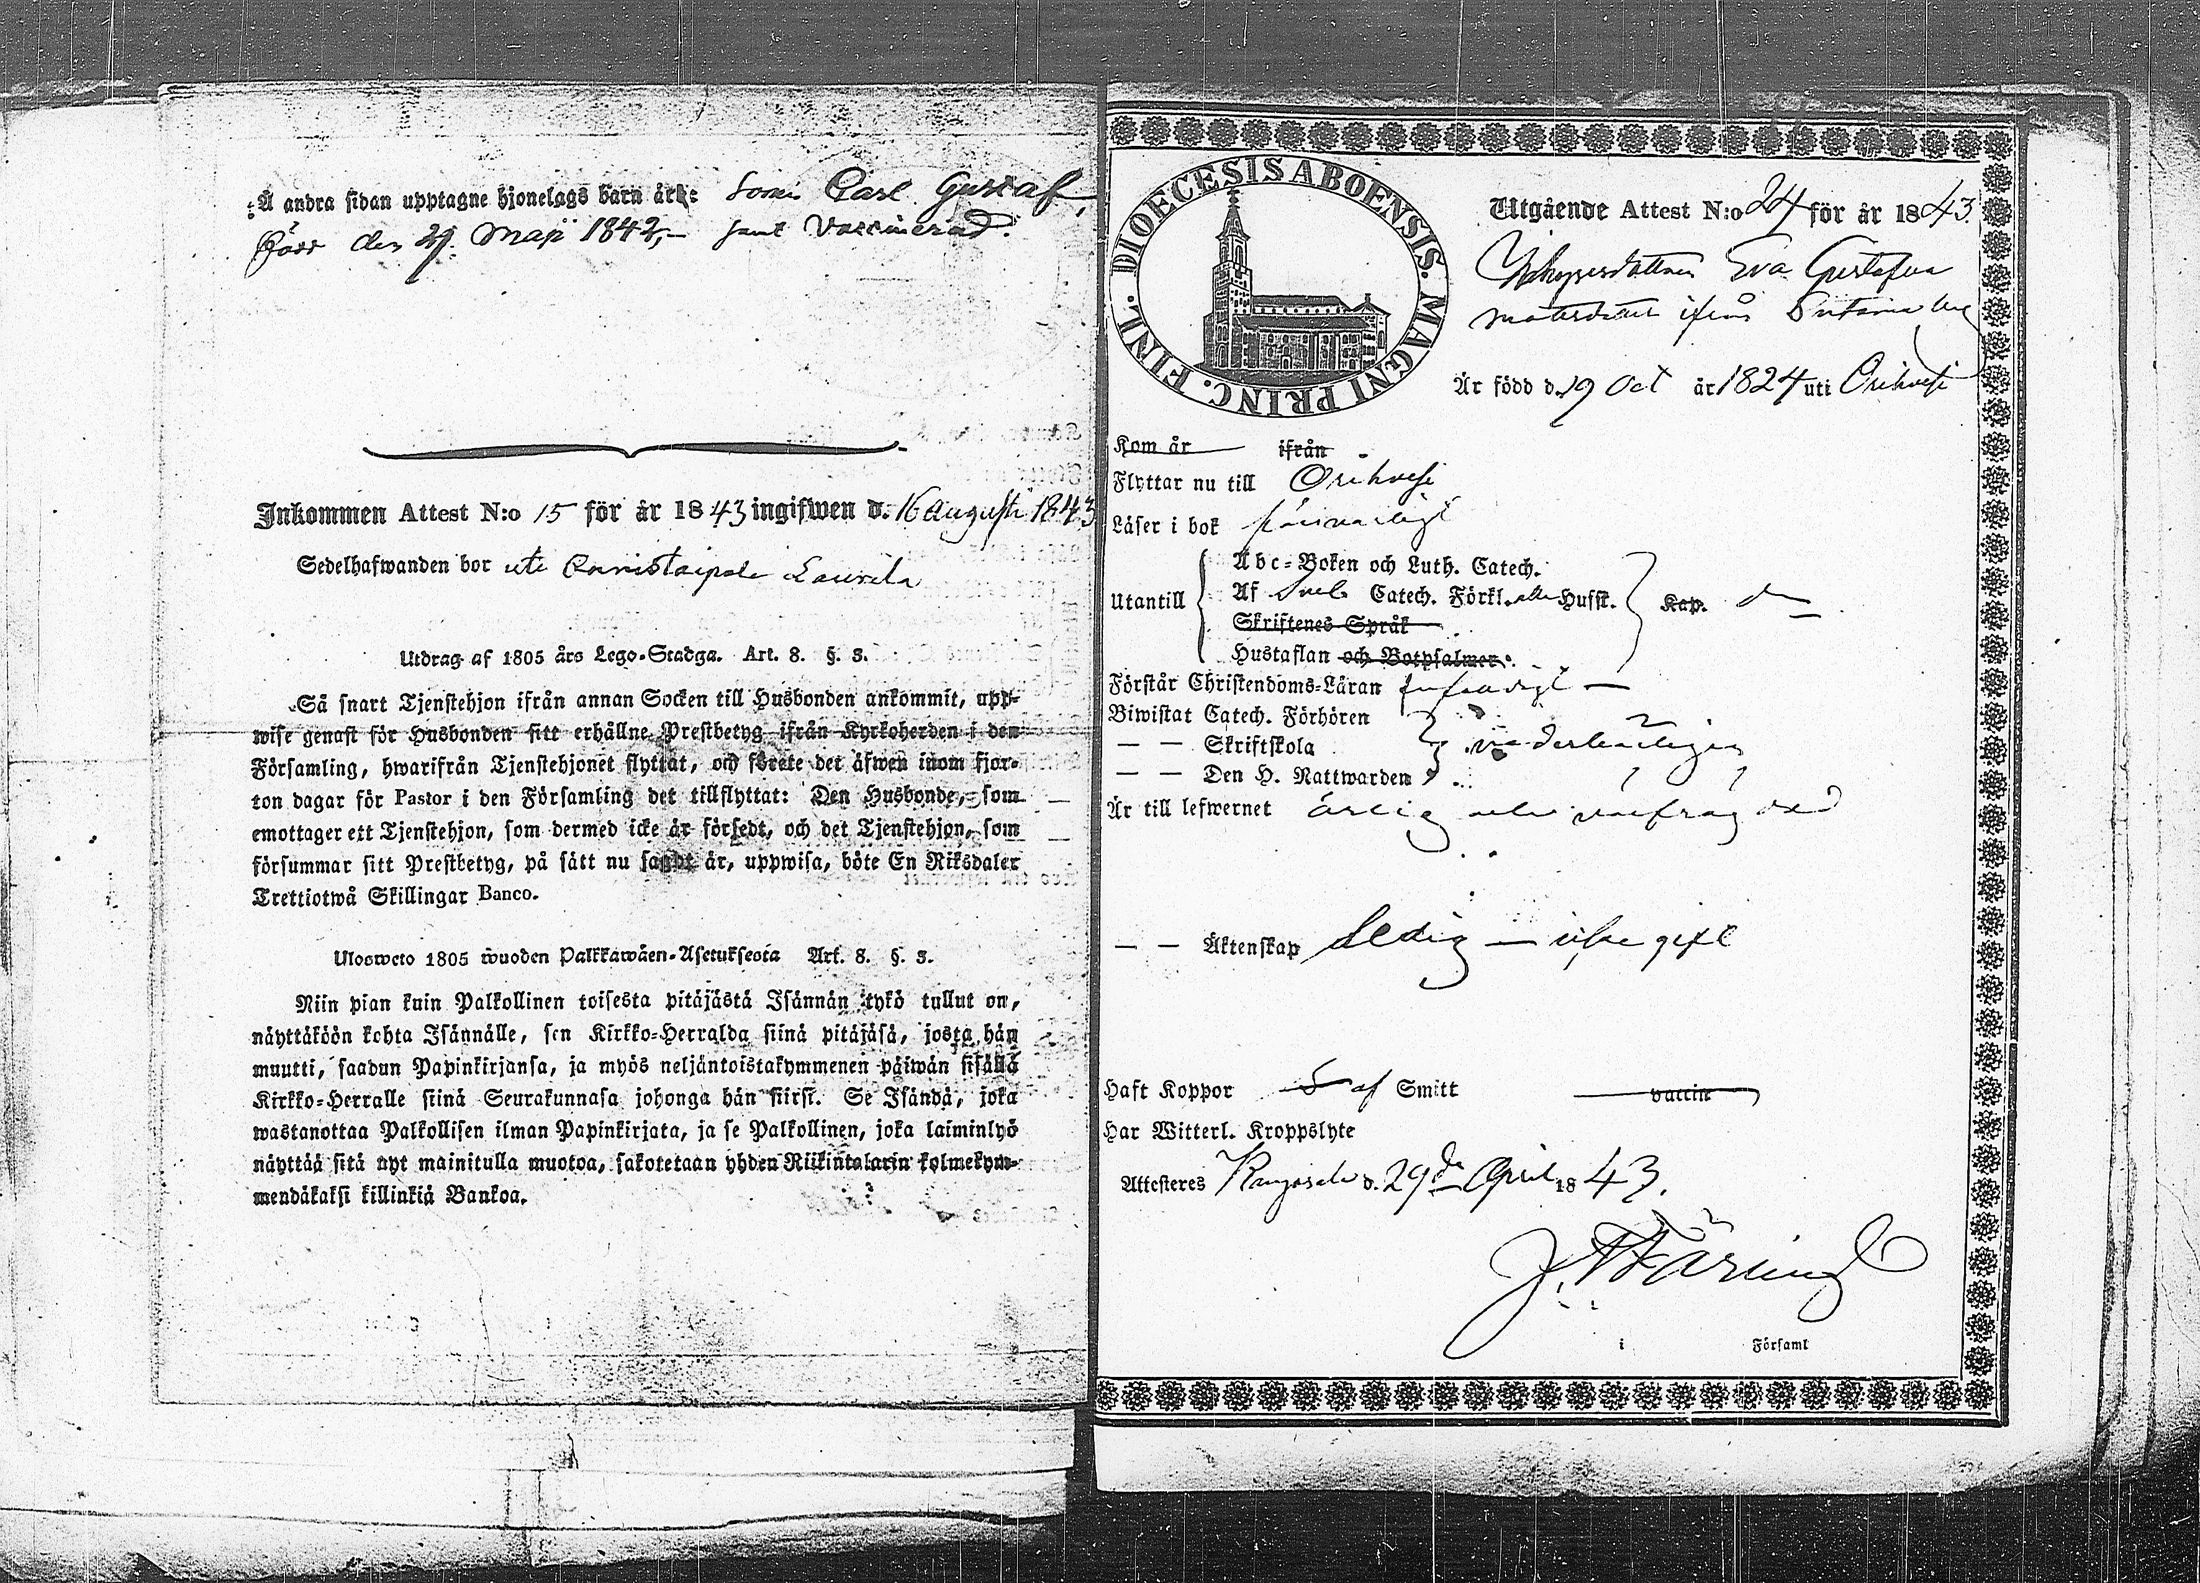 Å andra sidan upptagne hjonelags barn är: Sonen Carl Gustaf,
född den 29. Maji 1842, – samt Vaccinerad.
Inkommen Attest N:o 15 för år 1843 ingifwen d. 16 Augusti 1843
Sedelhafwanden bor uti Laurila
Utdrag af 1805 års Lego-Stadga. Art. 8. §. 3.
Så snart Tjenstehjon ifrån annan Socken till Husbonden ankommit, upp-
wise genast för Husbonden sitt erhållne Prestbetyg ifrån Kyrkoherden i den
Församling, hwarifrån Tjenstehjonet flyttat, och förete det äfwen inom fjor-
ton dagar för Pastor i den Församling det tillflyttat: Den Husbonde, som
emottager ett Tjenstehjon, som dermed icke är försedt, och det Tjenstehjon, som
försummar sitt Prestbetyg, på sätt nu sagdt är, uppwisa, böte En Riksdaler
Trettiotwå Skillingar Banco.
Ulosweto 1805 wuoden Palkkawäen-Asetuksesta Art. 8. §. 3.
Niin pian kuin Palkollinen toisesta pitäjästä Isännän tykö tullut on,
näyttäköön kohta Isännälle, sen Kirkko-Herralda siinä pitäjäsä, josta hän
muutti, saadun Papinkirjansa, ja myös neljäntoistakymmenen päiwän sisällä
Kirkko-Herralle siinä Seurakunnasa johonga hän siirsi. Se Isändä, joka
wastanottaa Palkollisen ilman Papinkirjata, ja se Palkollinen, joka laiminlyö
näyttää sitä nyt mainitulla muotoa, sakotetaan yhden Riikintalarin kolmekym-
mendäkaksi killinkiä Bankoa.
DIOECESIS ABOENSIS. MAGNI PRINC. FINL.
Utgående Attest N:o 24 för år 1843.
Eva Gustafva
ifrån
Är född d. 19 Oct år 1824 uti Orihvesi
Kom år ifrån
Flyttar nu till Orihvesi
Läser i bok försvarligt
Utantill
Abc-Boken och Luth. Catech.
Af Sveb. Catech. Förkl. Husst. Kap.
Skriftenes Språk
Hustaflan och Botpsalmer.
Förstår Christendoms-Läran
Biwistat Catech. Förhören
— — Skriftskola
— — Den H. Nattwarden
Är till lefwernet ärlig och oberyktad
— — Äktenskap Ledig – icke gift
Haft Koppor af Smitt vaccin
Har Witterl. Kroppslyte
Attesteres Kangasala d. 29de April 1843.
i Församl